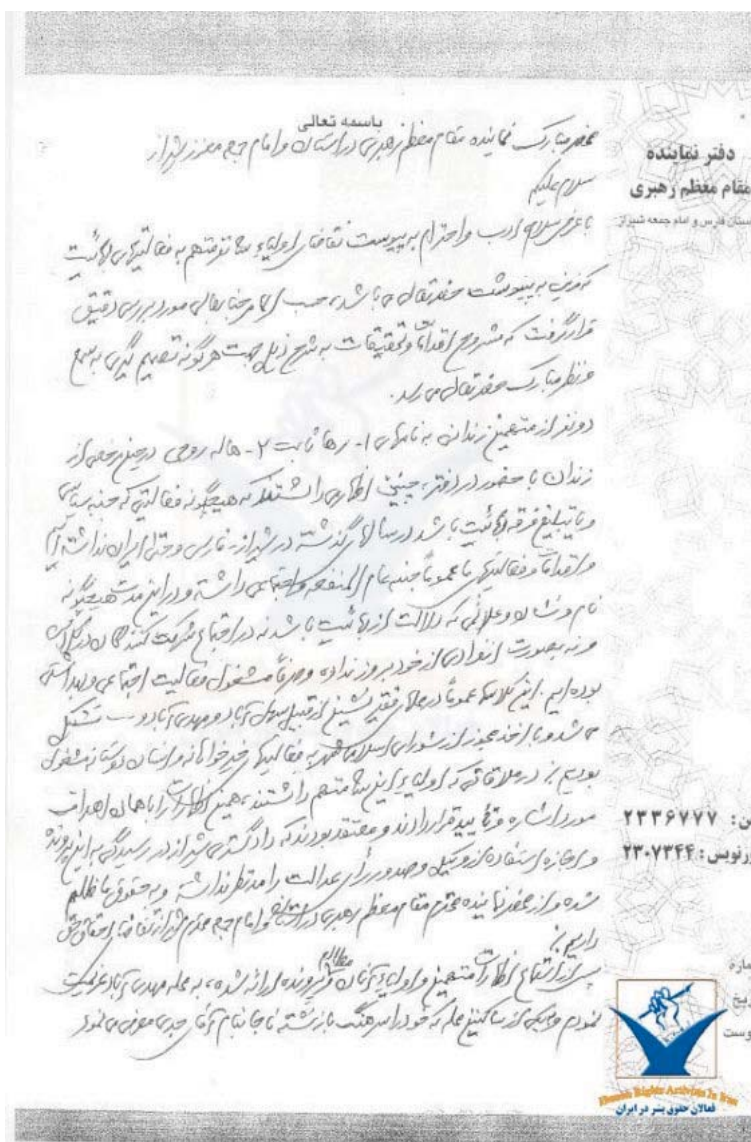 باسمه تعالی
محضر مبارک نماینده مقام معظم رهبری در استان و امام جمعه معزز شیراز
سلام علیکم
با عرض سلام و ادب و احترام به پیوست تقاضای اولیاء سه نفر متهم به فعالیتهای بهائیت
که مزین به پینوشت حضرتعالی می باشد، حسب الامر جنابعالی مورد بررسی دقیق
قرار گرفت که مشروح اقدامات و تحقیقات به شرح ذیل جهت هرگونه تصمیم گیری به سمع
و نظر مبارک حضرتعالی می رسد.
دو نفر از متهمین زندانی به نامهای ۱- رها ثابت ۲- هاله روحی در حین مرخصی از
زندان با حضور در دفتر، چنین اظهار می داشتند که هیچگونه فعالیتی که جنبه سیاسی
و یا تبلیغ فرقه بهائیت باشد در سالهای گذشته در شیراز، فارس و حتی ایران نداشته ایم
و اقدامات و فعالیتهای ما عموماً جنبه عام المنفعه و اجتماعی داشته و در این مدت هیچگونه
نام و نشان و علائمی که دلالت از بهائیت باشد نه در اجتماع شرکت کنندگان در کلاس
و نه بصورت انفرادی از خود بروز نداده و صرفاً مشغول فعالیت اجتماعی و بهداشتی
بوده ایم. این کلاسها عموماً در محلات فقیرنشین از قبیل سهل آباد و مهدی آباد تشکیل
می شد و با اخذ مجوز از شورای اسلامی شهر به فعالیتهای خیرخواهانه و انسان دوستانه مشغول
بودیم. در ملاقاتی که اولیاء این سه متهم داشتند، همین اظهارات را با همان اهداف
مورد اشاره و تأیید قرار دادند و معتقد بودند که دادگستری شیراز در رسیدگی به این پرونده
و اجازه استفاده از وکیل و صدور رأی عدالت را مدنظر نداشته و به حقوق ما ظلم
شده و از محضر نماینده محترم مقام معظم رهبری در استان و امام جمعه محترم شیراز تقاضای احقاق حق
داریم.
پس از استماع اظهارات متهمین و اولیاء آنان و مطالعه پرونده ارائه شده، به محله مهدی آباد عزیمت
نمودم و یکی از ساکنین محله که خود را سرهنگ بازنشسته ناجا بنام آقای جدی معرفی می نمود
دفتر نماینده
مقام معظم رهبری
ستان فارس و امام جمعه شیراز
ن: ۲۳۳۶۷۷۷
ورنویس: ۲۳۰۷۳۴۴
ماره
ریخ
وست
Human Rights Activists In Iran
فعالان حقوق بشر در ایران